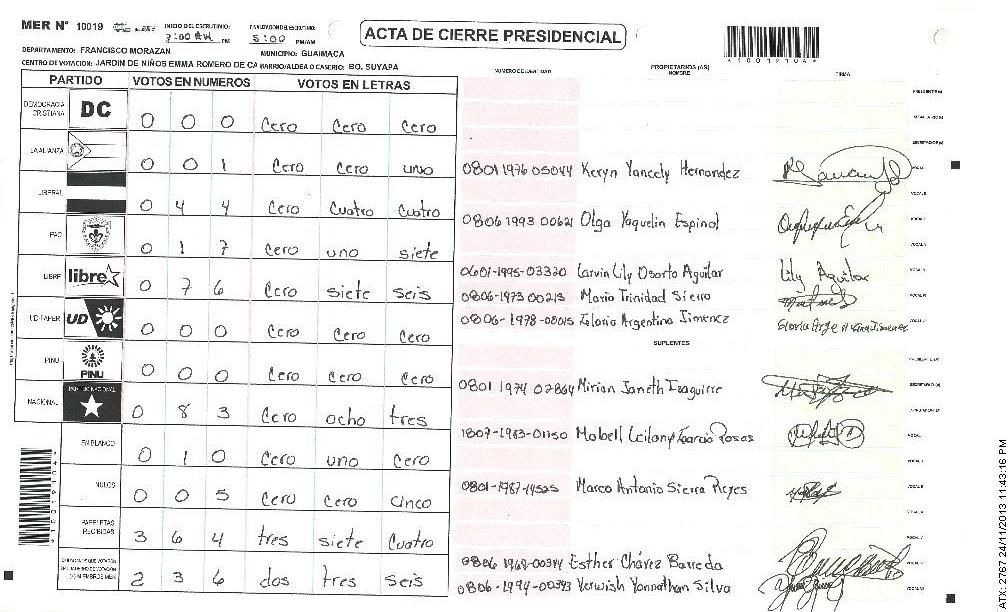 MER N° 10019 INICIO DEL ESCRUTINIO: FINALIZACION DEL ESCRUTINIO:
7:00 AM PM 5:00 PM/AM
ACTA DE CIERRE PRESIDENCIAL
*10019104*
DEPARTAMENTO: FRANCISCO MORAZAN MUNICIPIO: GUAIMACA
CENTRO DE VOTACION: JARDIN DE NIÑOS EMMA ROMERO DE CA BARRIO/ALDEA O CASERIO: BO. SUYAPA
NUMERO DE IDENTIDAD PROPIETARIOS (AS) NOMBRE FIRMA
PARTIDO VOTOS EN NUMEROS VOTOS EN LETRAS
DEMOCRACIA CRISTIANA DC 0 0 0 Cero Cero Cero
LA ALIANZA 0 0 1 Cero Cero uno
0801 1976 05044 Keryn Yancely Hernandez
LIBERAL 0 4 4 Cero Cuatro Cuatro
0806 1993 00621 Olga Yaquelin Espinal
PAC 0 1 7 Cero uno siete
LIBRE libre 0 7 6 Cero siete seis
0601-1995-03320 Larvin Lily Osorto Aguilar Lily Aguilar
0806-1973 00213 Maria Trinidad Sierra
UD-FAPER UD 0 0 0 Cero Cero Cero
0806-1978-00015 Gloria Argentina Jimenez Gloria Argentina Jimenez
SUPLENTES
PINU PINU 0 0 0 Cero Cero Cero
NACIONAL PARTIDO NACIONAL 0 8 3 Cero ocho tres
0801 1974 02864 Mirian Janeth Izaguirre
EN BLANCO 0 1 0 Cero uno Cero
1807-1983-01150 Mabell Leilany Garcia Rosas
NULOS 0 0 5 Cero Cero Cinco
0801-1987-14525 Marco Antonio Sierra Reyes
PAPELETAS RECIBIDAS 3 6 4 tres siete Cuatro
2 3 6 dos tres seis
0806 1969-00344 Esther Chávez Barreda
0806-1994-00343 Yerwish Yonnathan Silva
*10019104*
ATX 2767 24/11/2013 11:43:16 PM